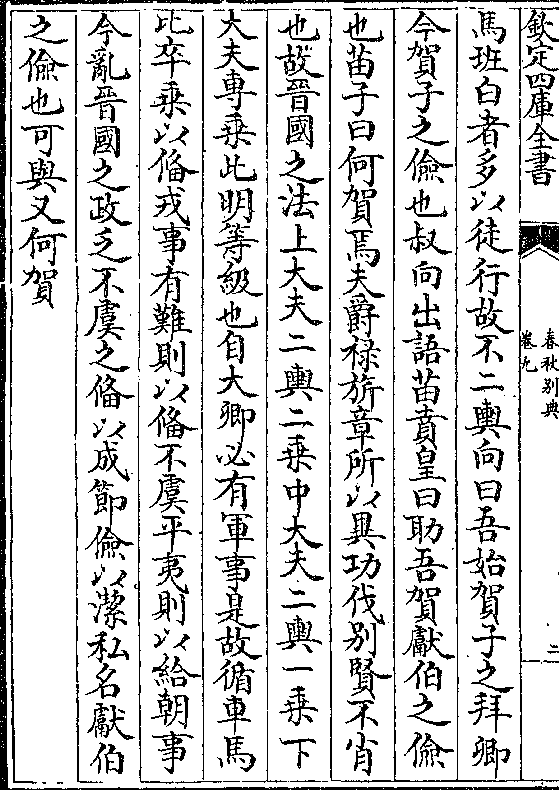 欽定四庫全書
春秋别典
卷九
二
馬班白者多以徒行故不二輿向曰吾始賀子之拜卿
今賀子之儉也叔向出語苗賁皇曰助吾賀獻伯之儉
也苗子曰何賀焉夫爵禄旂章所以異功伐别賢不肖
也故晉國之法上大夫二輿二乗中大夫二輿一乗下
大夫専乗此明等級也自大卿必有軍事是故循車馬
比卒乗以俻戎事有難則以俻不虞平夷則以給朝事
今亂晉國之政乏不虞之俻以成節儉以潔私名獻伯
之儉也可與又何賀